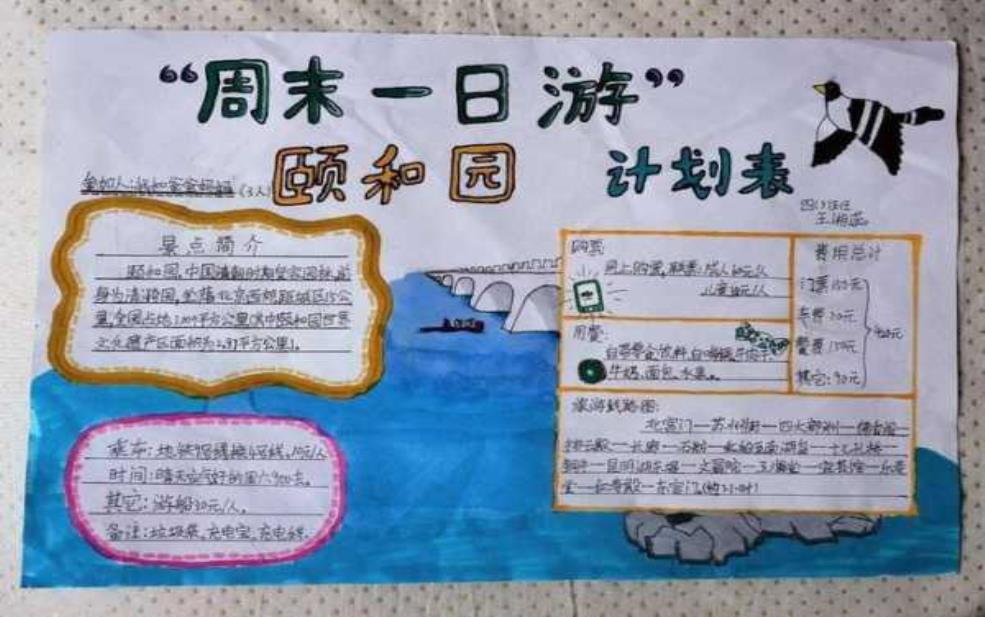 “周末一日游”
颐和园 计划表
参加人:我和爸爸妈妈(3人)
四(1)班
王湘
景点简介
颐和园,中国清朝时期皇家园林,前
身为清漪园,坐落北京西郊,距城区15公
里,全园占地3.009平方公里(其中颐和园世界
文化遗产区面积为2.97平方公里)。
乘车:地铁 线换4号线,10元/人
时间:晴天空气好的周六9:00去。
其它:游船30元/人。
备注:垃圾袋、充电宝、充电线。
购票:
网上购票,联票:成人60元/人
儿童 元/人
用餐:
自带零食饮料,自嗨锅、牛肉干、
牛奶、面包、水果。
费用总计
门票150元
车费30元
餐费150元
其它:90元
420元
旅游线路图:
北宫门—苏州街—四大部洲—佛香阁—
排云殿—长廊—石舫— —十七孔桥—
铜牛—昆明湖东堤—文昌院— —宜芸馆—乐寿
堂—仁寿殿—东宫门。(约3.5小时)